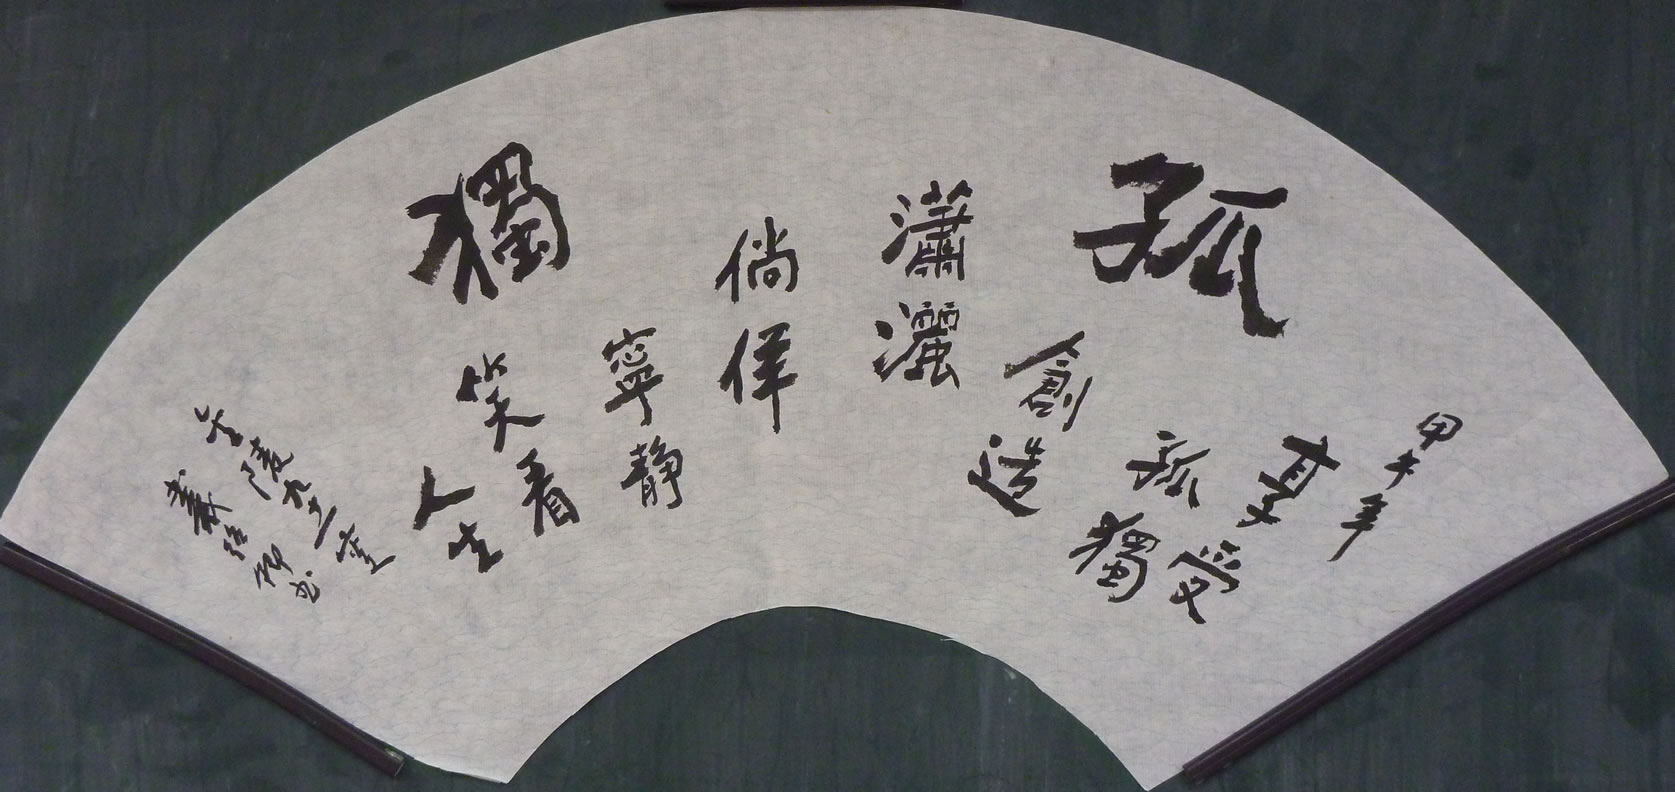 甲午年
孤
享受
孤獨
創造
瀟灑
倘佯
寧静
獨
笑看
人生
金陵
書